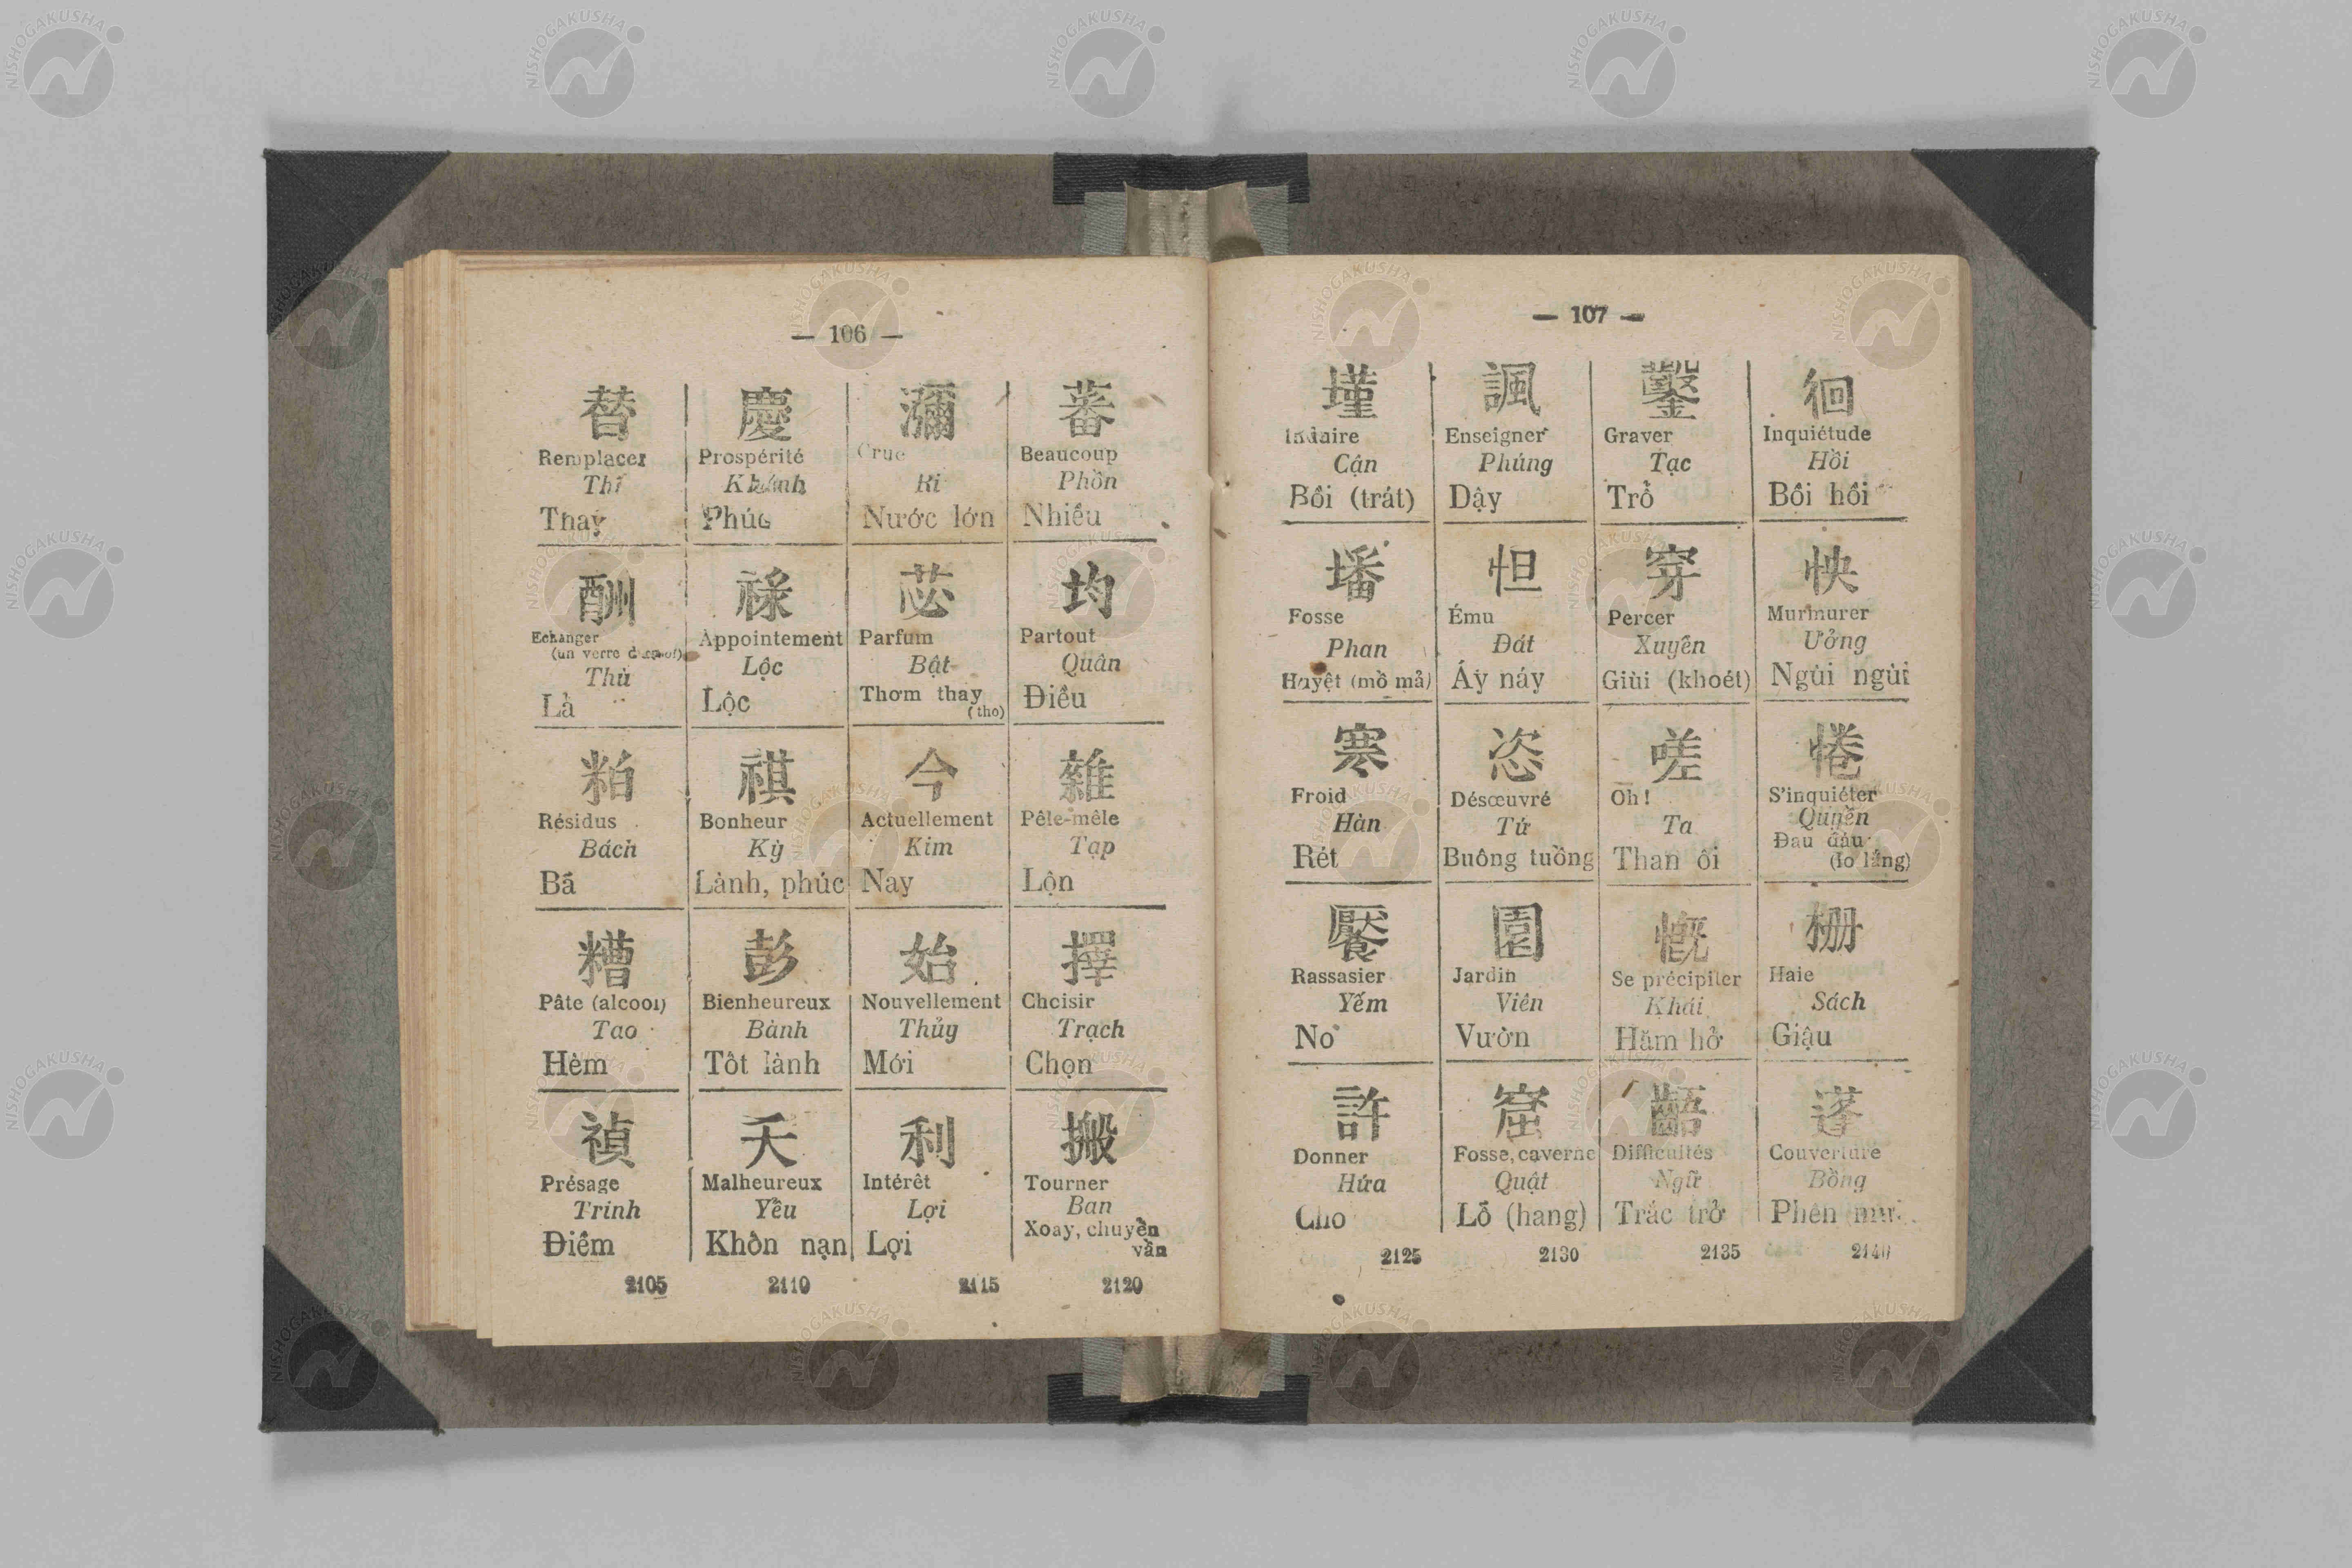 — 106 —
替
Remplacer
Thế
Thay
酬
Echanger
(un verre
Thù
Lả
粕
Résidus
Bách
Bã
糟
Pâte (alcool)
Tao
Hèm
禎
Présage
Trinh
Điềm
2105
慶
Prospérité
Khánh
Phúc
祿
Appointement
Lộc
Lộc
祺
Bonheur
Kỳ
Lành, phúc
彭
Bienheureux
Bành
Tốt lành
夭
Malheureux
Yểu
Khốn nạn
2110
瀰
Crue
Ri
Nước lớn
苾
Parfum
Bật
Thơm thay
(tho)
今
Actuellement
Kim
Nay
始
Nouvellement
Thủy
Mới
利
Intérêt
Lợi
Lợi
2115
蕃
Beaucoup
Phồn
Nhiều
均
Partout
Quân
Điều
雜
Pêle-mêle
Tạp
Lộn
擇
Choisir
Trạch
Chọn
搬
Tourner
Ban
Xoay, chuyển
vần
2120
— 107 —
墐
Cận
Bồi (trát)
墦
Fosse
Phan
Huyệt (mồ mả)
寒
Froid
Hàn
Rét
饜
Rassasier
Yếm
No
許
Donner
Hứa
Cho
2125
諷
Enseigner
Phúng
Dậy
怛
Ému
Đát
Áy náy
恣
Désœuvré
Tứ
Buông tuồng
園
Jardin
Viên
Vườn
窟
Fosse, caverne
Quật
Lỗ (hang)
2130
鑿
Graver
Tạc
Trổ
穿
Percer
Xuyên
Giùi (khoét)
嗟
Oh !
Ta
Than ôi
慨
Se précipiter
Khái
Hăm hở
齬
Difficultés
Ngữ
Trắc trở
2135
徊
Inquiétude
Hồi
Bồi hồi
怏
Murmurer
Ưởng
Ngùi ngùi
惓
S'inquiéter
Quyền
Đau đáu
(lo lắng)
栅
Haie
Sách
Giậu
蓬
Couverture
Bồng
Phên
2140